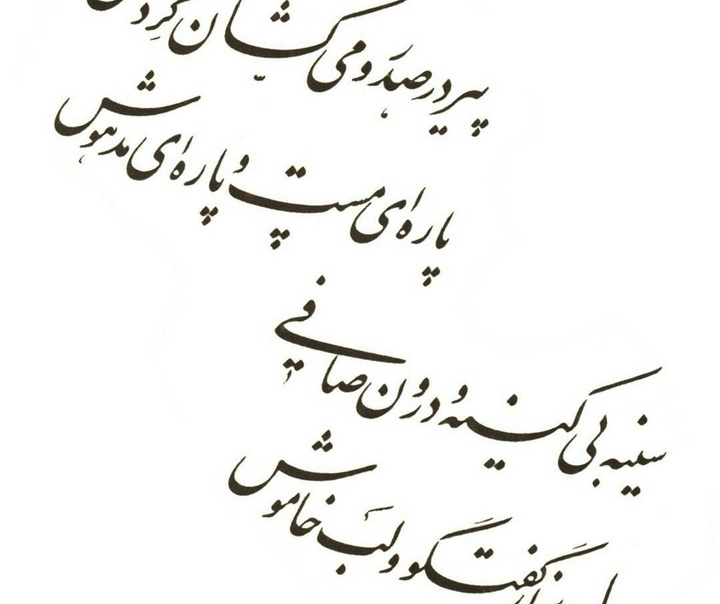 پیر در صدر و می کشان گردش
پاره ای مست و پاره ای مدهوش
سینه بی کینه و درون صافی
گفتگو و لب خاموش